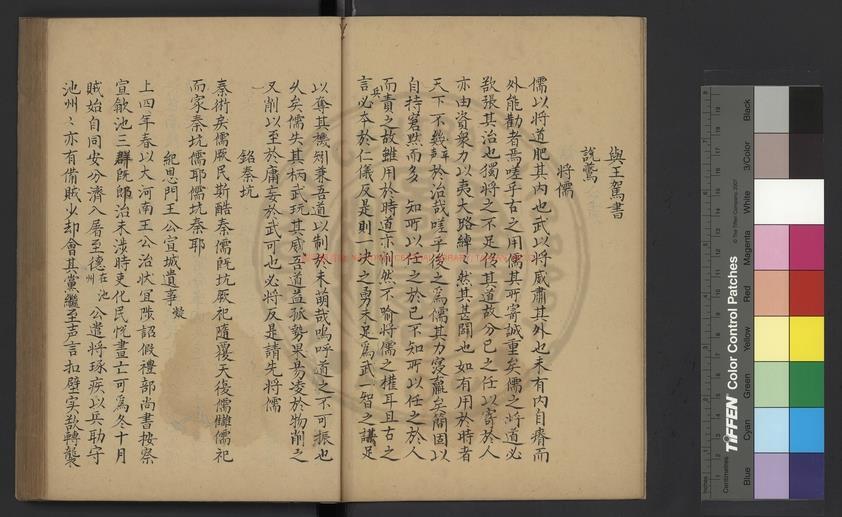 與王駕書
說鷰
將儒
儒以将道肥其内也武以將威肅其外也未有内自瘠而
外能勸者焉嗟乎古之用儒其所寄誠重矣儒之将道必
欲張其治也獨將之不足於其道故分己之任以寄於人
亦由資衆力以夷大路
然其甚闢也如有用於時者
天下不幾
於治哉嗟乎後之為儒其力寖羸矣簡固以
自持窘然而多
知所以任之於己不知所以任之於人
而責之故雖用於時道亦削然不喻將儒之權耳且古之
言必本於仁儀反是則一夫之勇未足為武一智之講足
以奪其機矧兼吾道以制於未萌哉嗚呼道之不可振也
久矣儒失其柄武玩其威吾道益孤勢果易凌於物削之
又削以至於庸妄於武可也必將反是請先將儒
銘秦坑
秦術矣儒厥民斯酷秦儒既坑厥祀隨覆天復儒讎儒祀
而家秦坑儒耶儒坑秦耶
紀恩門王公宣城遺事 凝
上四年春以大河南王公治状宜陟詔假禮部尚書按察
宣歙池三群既郎治未浹時吏化民恱晝亡可為冬十月
賊始自同安分濟入屠至德在池州公遣將琢疾以兵助守
池州〻亦有備賊少却會其黨繼至声言扣壁实欲轉襲
TIFFEN Color Control Patches
© The Tiffen Company, 2007
Inches
Centimetres
Blue
Cyan
Green
Yellow
Red
Magenta
White
3/Color
Black